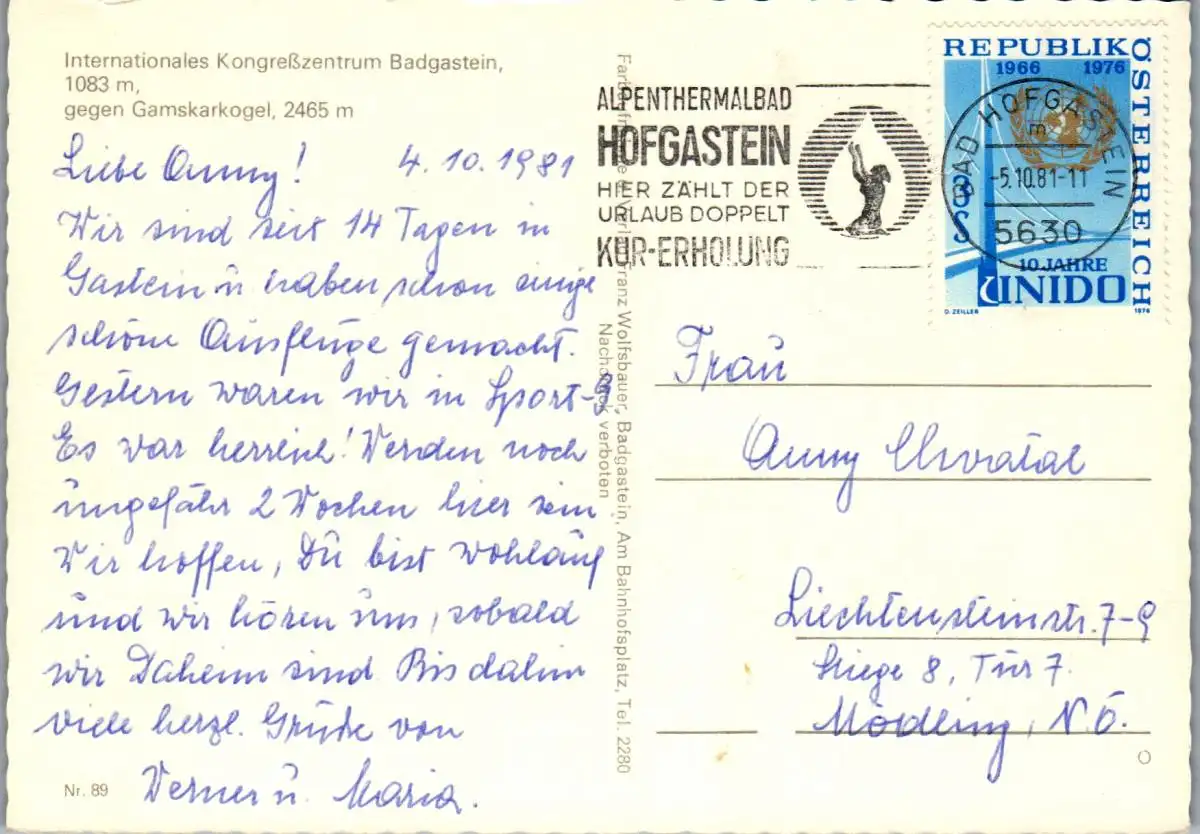 Internationales Kongreßzentrum Badgastein,
1083 m,
gegen Gamskarkogel, 2465 m
Liebe Anny! 4.10.1981
Wir sind seit 14 Tagen in
Gastein u haben schon einige
schöne Ausflüge gemacht.
Gestern waren wir in Sport-G.
Es war herrlich! Werden noch
ungefähr 2 Wochen hier sein.
Wir hoffen, Du bist wohlauf
und wir hören uns, sobald
wir Daheim sind Bis dahin
viele herzl. Grüße von
Werner u. Maria.
Nr. 89
Franz Wolfsbauer, Badgastein, Am Bahnhofsplatz, Tel. 2280
Nachdruck verboten
ALPENTHERMALBAD
HOFGASTEIN
HIER ZÄHLT DER
URLAUB DOPPELT
KUR-ERHOLUNG
BAD HOFGASTEIN
m
-5.10.81-11
5630
REPUBLIK ÖSTERREICH
1966 1976
3 S
10 JAHRE
UNIDO
O. ZEILLER 1976
Frau
Anny Chvatal
Liechtensteinstr. 7-9
Stiege 8, Tür 7.
Mödling, N.Ö.